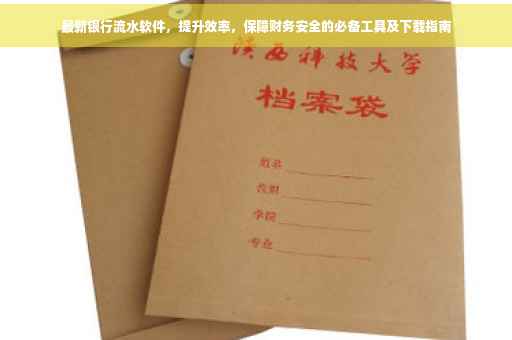 最新银行流水软件，提升效率，保障财务安全的必备工具及下载指南
陕西科技大学
档案袋
学院
专业